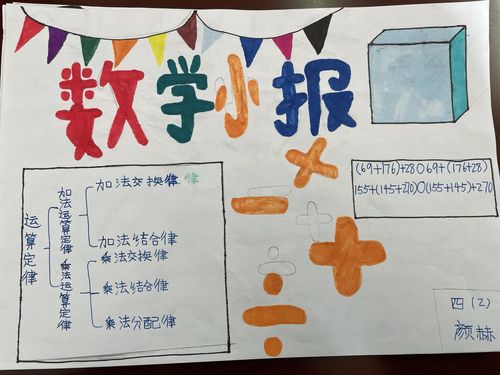 数学小报
运算定律
加法运算定律
加法交换律 律
加法结合律
乘法运算定律
乘法交换律
乘法结合律
乘法分配律
(69+176)+28○69+(176+28)
155+(145+270)○(155+145)+270
四(2)
颜赫